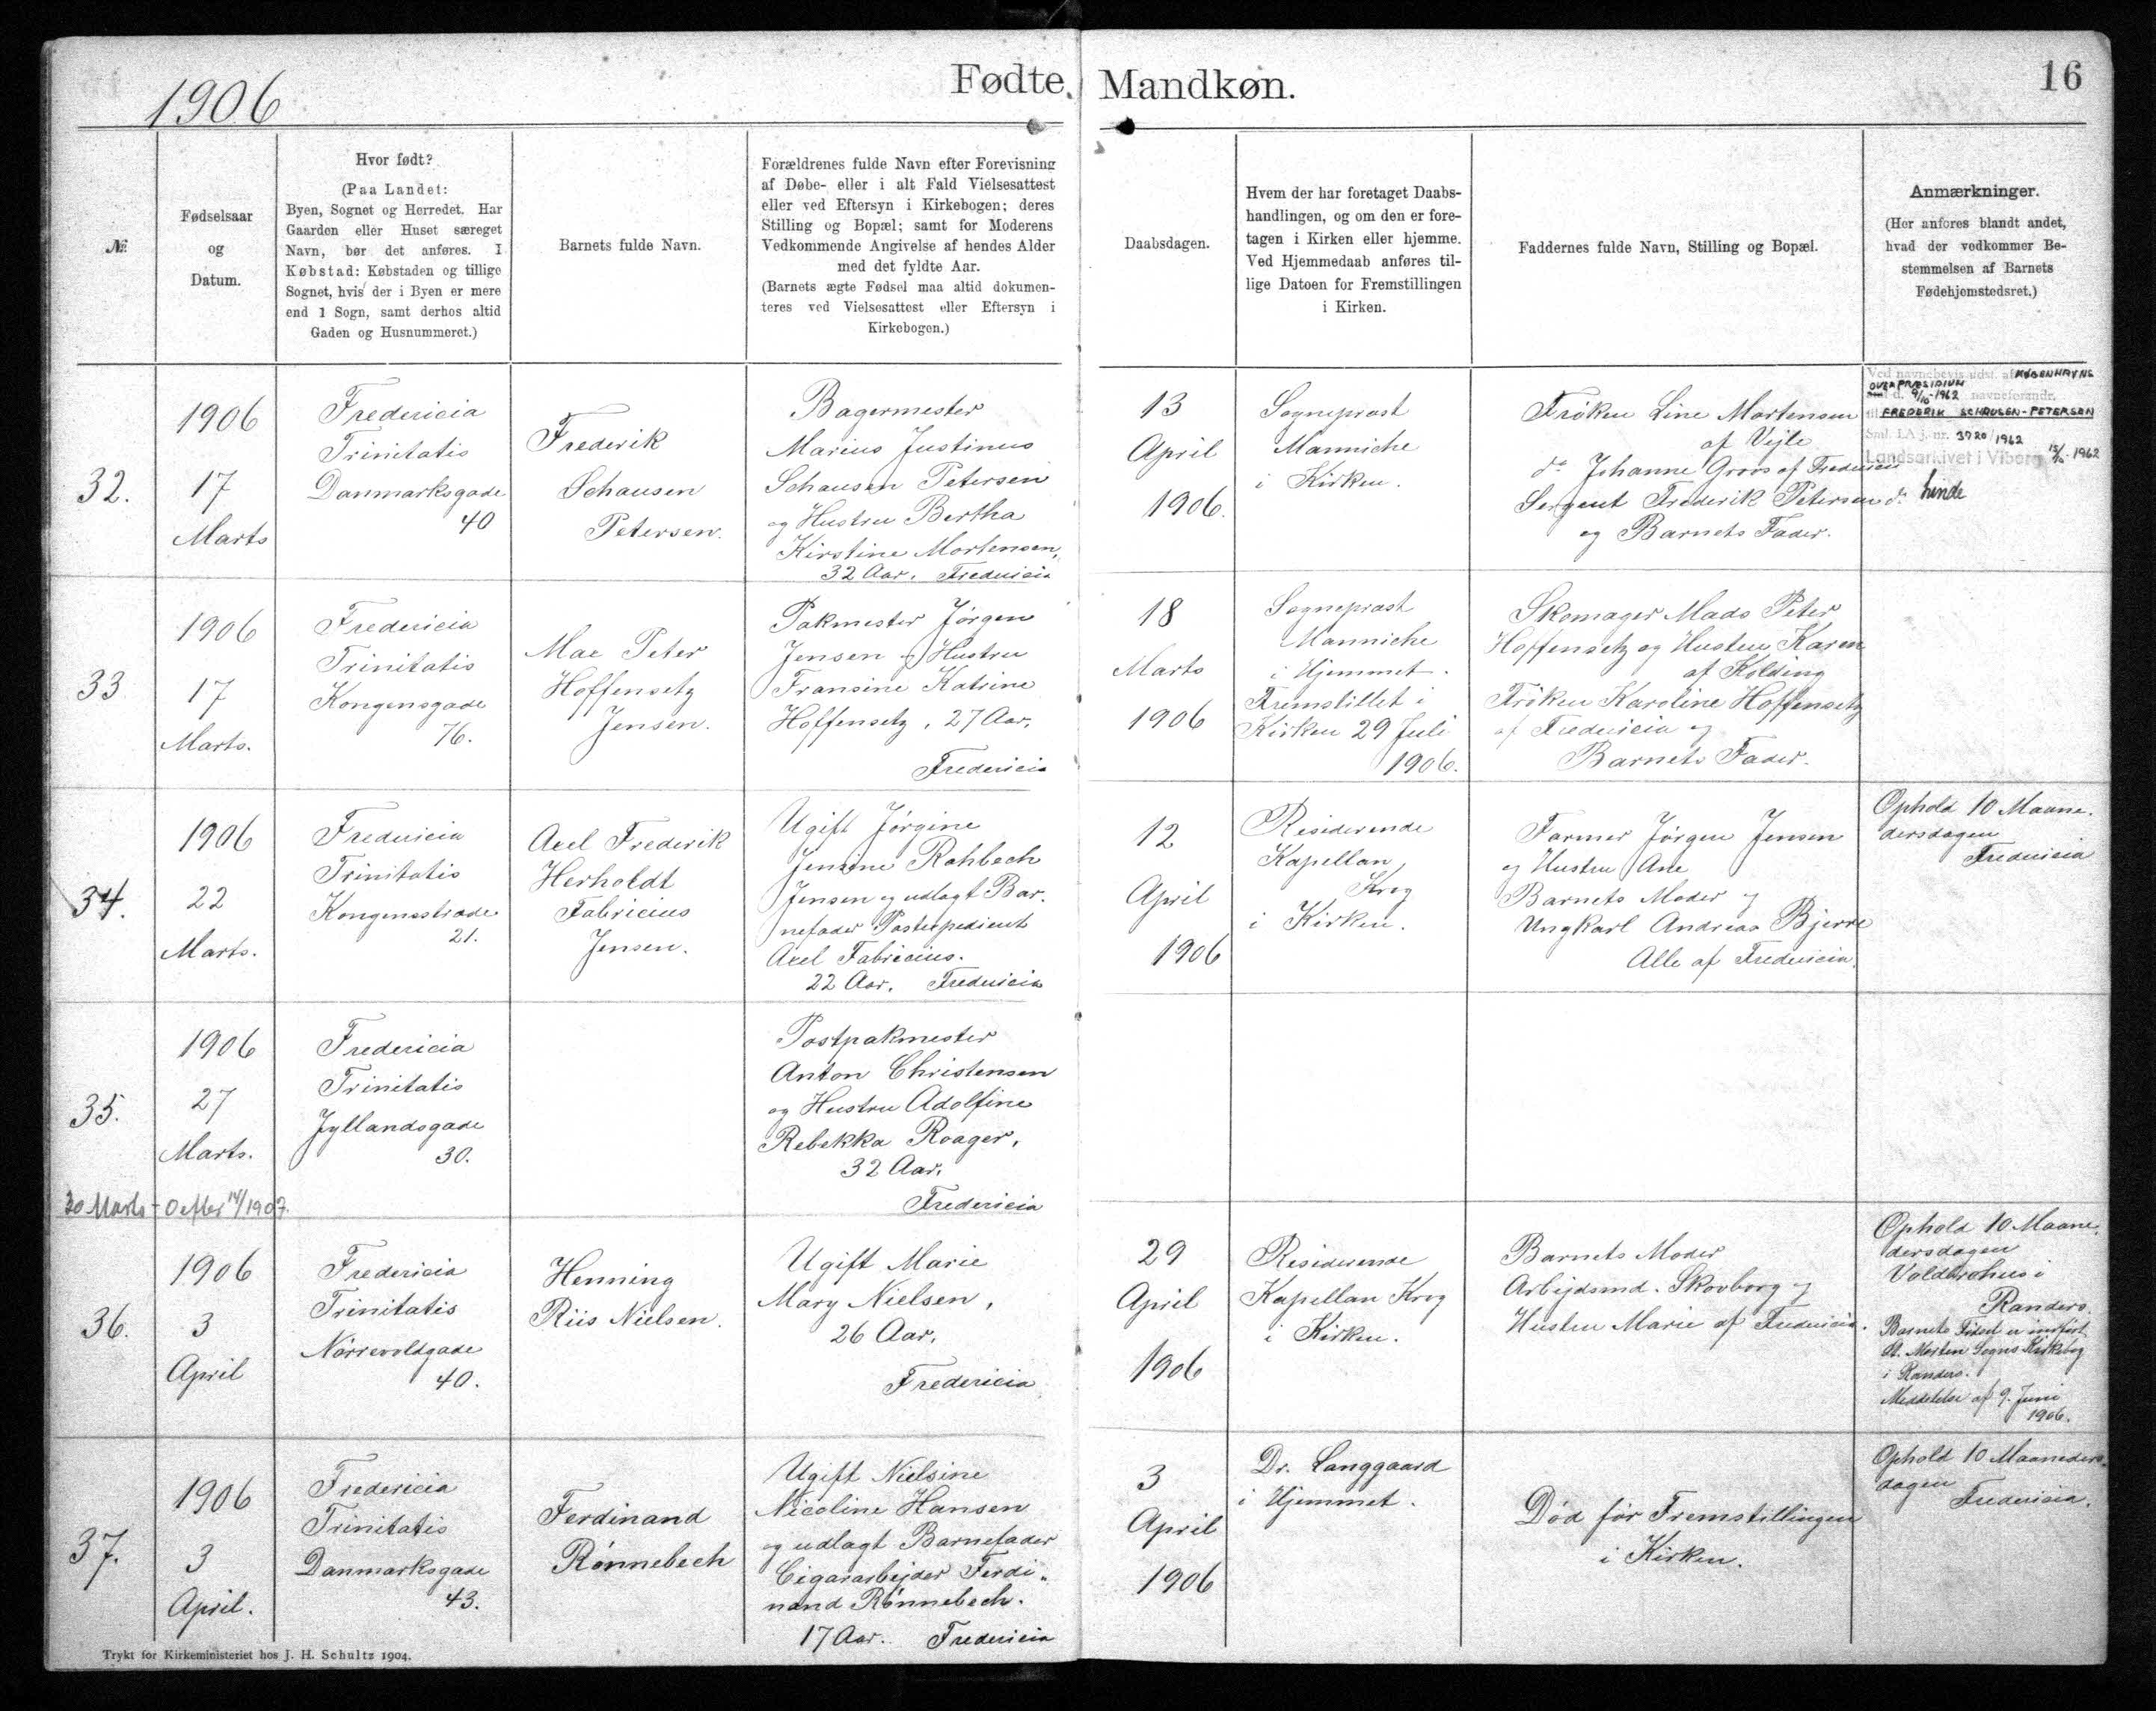 1906
Fødte, Mandkøn.
16
№
Fødselsaar
og
Datum.
Hvor født?
(Paa Landet:
Byen, Sognet og Herredet. Har
Gaarden eller Huset særeget
Navn, bør det anføres. I
Købstad: Købstaden og tillige
Sognet, hvis der i Byen er mere
end 1 Sogn, samt derhos altid
Gaden og Husnummeret.)
Barnets fulde Navn.
Forældrenes fulde Navn efter Forevisning
af Døbe- eller i alt Fald Vielsesattest
eller ved Eftersyn i Kirkebogen; deres
Stilling og Bopæl; samt for Moderens
Vedkommende Angivelse af hendes Alder
med det fyldte Aar.
(Barnets ægte Fødsel maa altid dokumen-
teres ved Vielsesattest eller Eftersyn i
Kirkebogen.)
Daabsdagen.
Hvem der har foretaget Daabs-
handlingen, og om den er fore-
tagen i Kirken eller hjemme.
Ved Hjemmedaab anføres til-
lige Datoen for Fremstillingen
i Kirken.
Faddernes fulde Navn, Stilling og Bopæl.
Anmærkninger.
(Her anføres blandt andet,
hvad der vedkommer Be-
stemmelsen af Barnets
Fødehjemstedsret.)
32.
1906
17
Marts
Fredericia
Trinitatis
Danmarksgade
40
Frederik
Schausen
Petersen.
Bagermester
Marius Justinus
Schausen Petersen
og Hustru Bertha
Kirstine Mortensen,
32 Aar. Fredericia
13
April
1906.
Sognepræst
Manniche
i Kirken.
Frøken Line Mortensen
af Vejle
do Johanne Groos af Fredericia
Sergent Frederik Petersen do
og Barnets Fader.
Ved navnebevis udst. af KØBENHAVNS
OVERPRÆSIDIUM
d. 9/10-1962 navneforandr.
til FREDERIK SCHAUSEN-PETERSEN
Sml. LA j. nr. 3720/1962
Landsarkivet i Viborg 15/10-1962
33
1906
17
Marts.
Fredericia
Trinitatis
Kongensgade
76.
Max Peter
Hoffensetz
Jensen.
Pakmester Jørgen
Jensen og Hustru
Fransine Katrine
Hoffensetz, 27 Aar,
Fredericia
18
Marts
1906
Sognepræst
Manniche
i Hjemmet.
Fremstillet i
Kirken 29 Juli
1906.
Skomager Mads Peter
Hoffensetz og Hustru Karen
af Kolding
Frøken Karoline Hoffensetz
af Fredericia og
Barnets Fader.
34.
1906
22
Marts.
Fredericia
Trinitatis
Kongensstræde
21.
Axel Frederik
Herholdt
Fabricius
Jensen.
Ugift Jørgine
Jensine Rahbech
Jensen og udlagt Bar-
nefader Postexpedient
Axel Fabricius.
22 Aar. Fredericia
12
April
1906
Residerende
Kapellan
Krog
i Kirken.
Farmer Jørgen Jensen
og Hustru Ane
Barnets Moder og
Ungkarl Andreas Bjerre
Alle af Fredericia.
Ophold 10 Maane-
dersdagen
Fredericia
35.
1906
27
Marts.
Fredericia
Trinitatis
Jyllandsgade
30.
Postpakmester
Anton Christensen
og Hustru Adolfine
Rebekka Roager,
32 Aar.
Fredericia
36.
1906
3
April
Fredericia
Trinitatis
Nørrevoldgade
40.
Henning
Riis Nielsen.
Ugift Marie
Mary Nielsen,
26 Aar,
Fredericia
29
April
1906
Residerende
Kapellan Krog
i Kirken.
Barnets Moder
Arbejdsmd. Skovborg og
Hustru Marie af Fredericia.
Ophold 10 Maane-
dersdagen
i
Randers.
Barnets Fødsel er indført
St. Morten Sogns Kirkebog
i Randers.
Meddelelse af 9. Juni
1906.
37.
1906
3
April.
Fredericia
Trinitatis
Danmarksgade
43.
Ferdinand
Rønnebech
Ugift Nielsine
Nicoline Hansen
og udlagt Barnefader
Cigararbejder Ferdi-
nand Rønnebech.
17 Aar. Fredericia
3
April
1906
Dr. Langgaard
i Hjemmet.
Død før Fremstillingen
i Kirken.
Ophold 10 Maaneders-
dagen
Fredericia.
Trykt for Kirkeministeriet hos J. H. Schultz 1904.